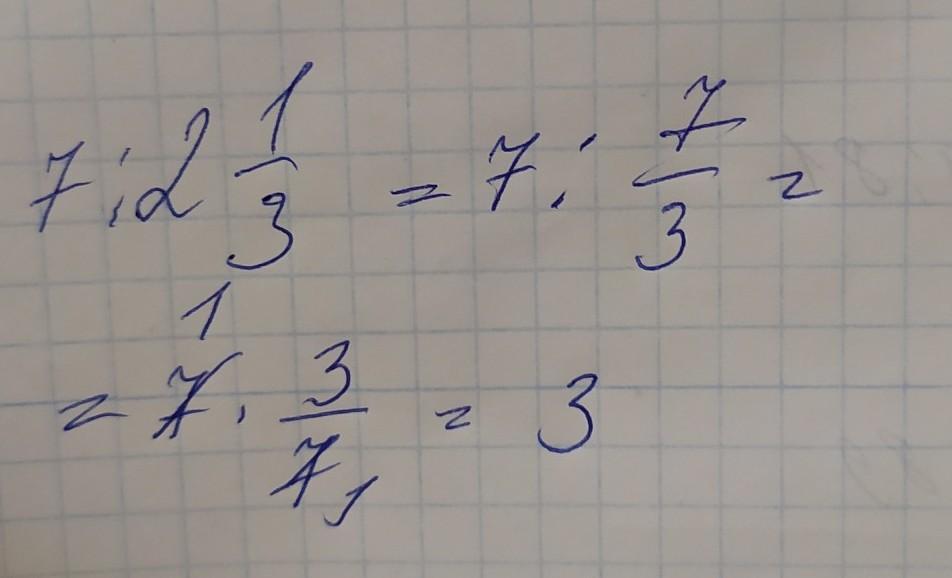 7 : 2 1/3 = 7 : 7/3 =
= 7 1 · 3/7 1 = 3